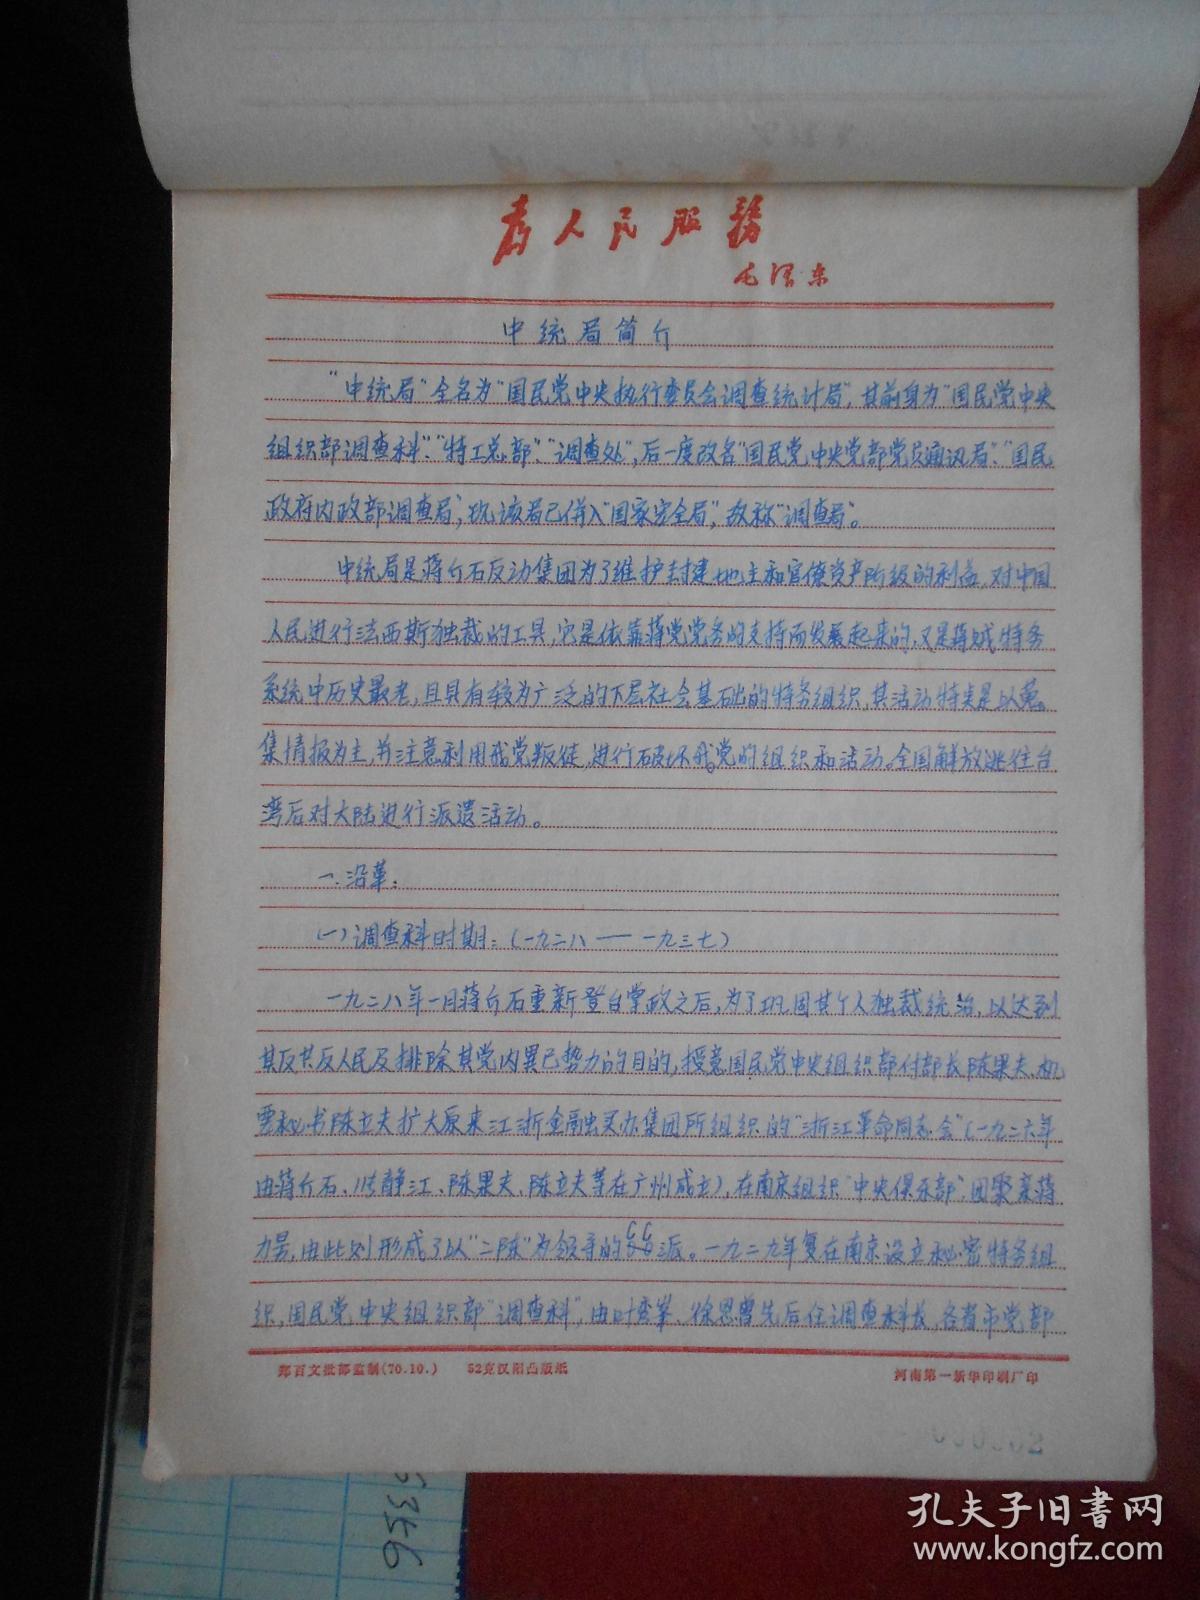 为人民服务
毛泽东
中统局简介
"中统局"全名为"国民党中央执行委员会调查统计局",其前身为"国民党中央
组织部调查科"、"特工总部"、"调查处",后一度改名"国民党中央党部党员通讯局"、"国民
政府内政部调查局",现该局已併入"国家安全局",改称"调查局"。
中统局是蒋介石反动集团为了维护封建地主和官僚资产阶级的利益,对中国
人民进行法西斯独裁的工具,它是依靠蒋党党务的支持而发展起来的,又是蒋贼特务
系统中历史最老,且具有较为广泛的下层社会基础的特务组织,其活动特点是以蒐
集情报为主,并注意利用我党叛徒,进行破坏我党的组织和活动。全国解放逃往台
湾后对大陆进行派遣活动。
一、沿革:
(一)调查科时期:(一九二八——一九三七)
一九二八年一月蒋介石重新登台掌政之后,为了巩固其个人独裁统治,以达到
其反共反人民及排除其党内異己势力的目的,授意国民党中央组织部付部长陈果夫、机
要秘书陈立夫扩大原来江浙金融买办集团所组织的"浙江革命同志会"(一九二六年
由蒋介石、张静江、陈果夫、陈立夫等在广州成立),在南京组织"中央俱乐部",团聚亲蒋
力量,由此则形成了以"二陈"为领导的CC派。一九二九年复在南京设立秘密特务组
织,国民党中央组织部"调查科",由叶秀峯、徐恩曾先后任调查科长,各省市党部
郑百文批部监制(70.10.) 52克汉阳凸版纸 河南第一新华印刷厂印
5346
孔夫子旧书网
www.kongfz.com